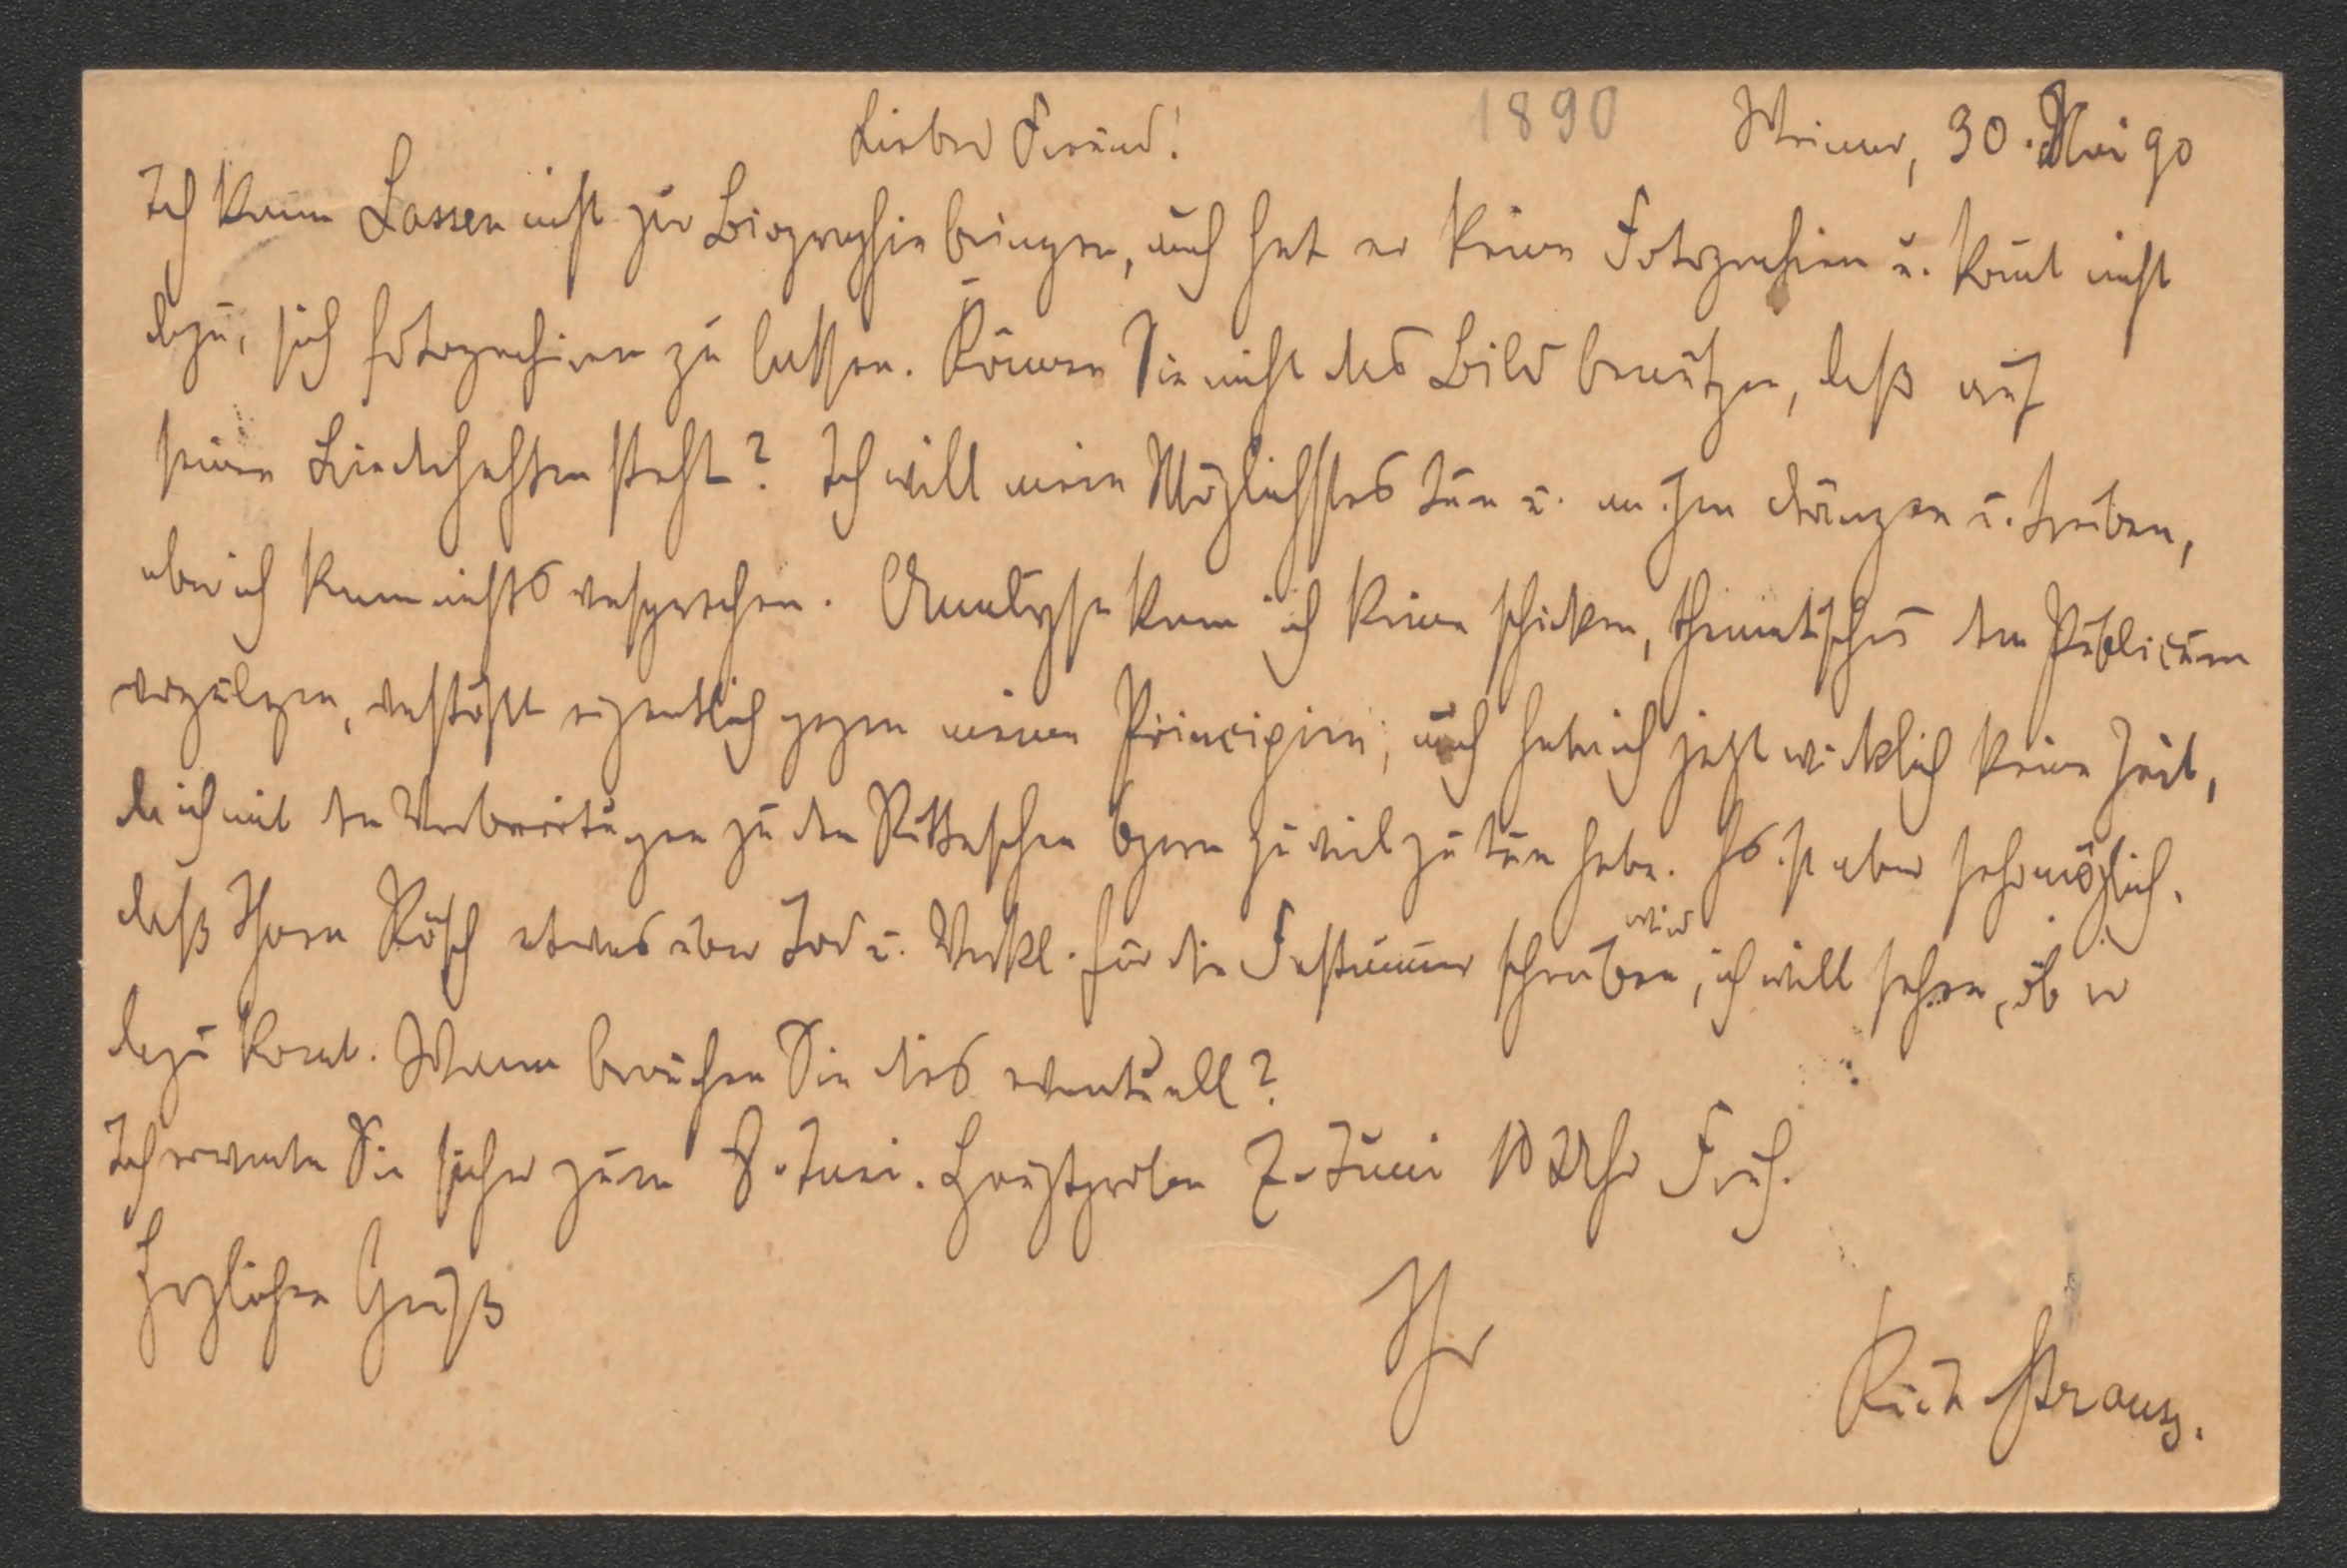 1890 Weimar, 30. Mai 90
Lieber Freund!
Ich kann Lassen nicht zur Biographie bringen, auch hat er keine Fotografien u. komt nicht
dazu, sich fotografiren zu lassen. Können Sie nicht das Bild benützen, daß auf
seinen Liederheften steht? Ich will mein Möglichstes tun u. an ihm drängen u. treiben,
aber ich kann nichts versprechen. Analyse kann ich keine schicken, thematisches dem Publicum
verstößt eigentlich gegen meine Principien; auch hab ich jetzt wirklich keine Zeit,
da ich mit den Vorbereitungen zu den Ritterschen Opern zu viel zu tun habe. Es ist aber sehr möglich,
daß Herr Rösch etwas über Tod u. Verkl. für die Festnummer schreiben wird, ich will sehen, ob er
dazu komt. Wann brauchen Sie dies eventuell?
Ich erwarte Sie sicher zum 8. Juni. Hauptproben 7. Juni 10 Uhr Früh.
Herzlichen Gruß
Ihr
Rich Strauss.